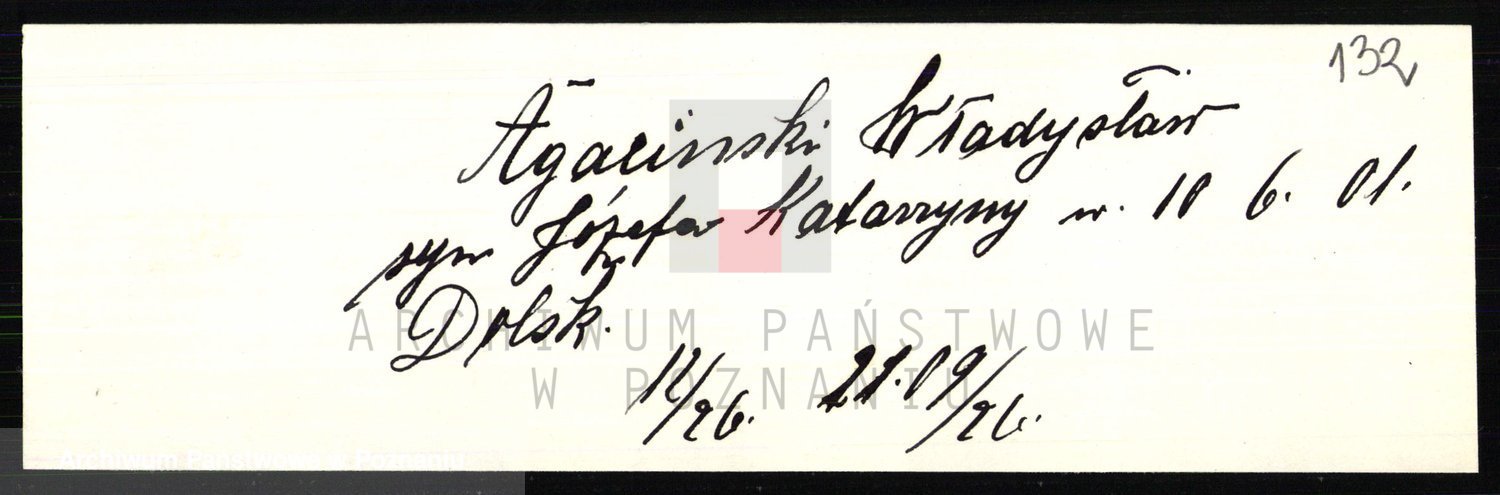 132
Agaciński Władysław
syn Józefa Katarzyny w. 10 6. 01.
Dolsk.
12/26. 21.09/26.
ARCHIWUM PAŃSTWOWE
W POZNANIU
Archiwum Państwowe w Poznaniu